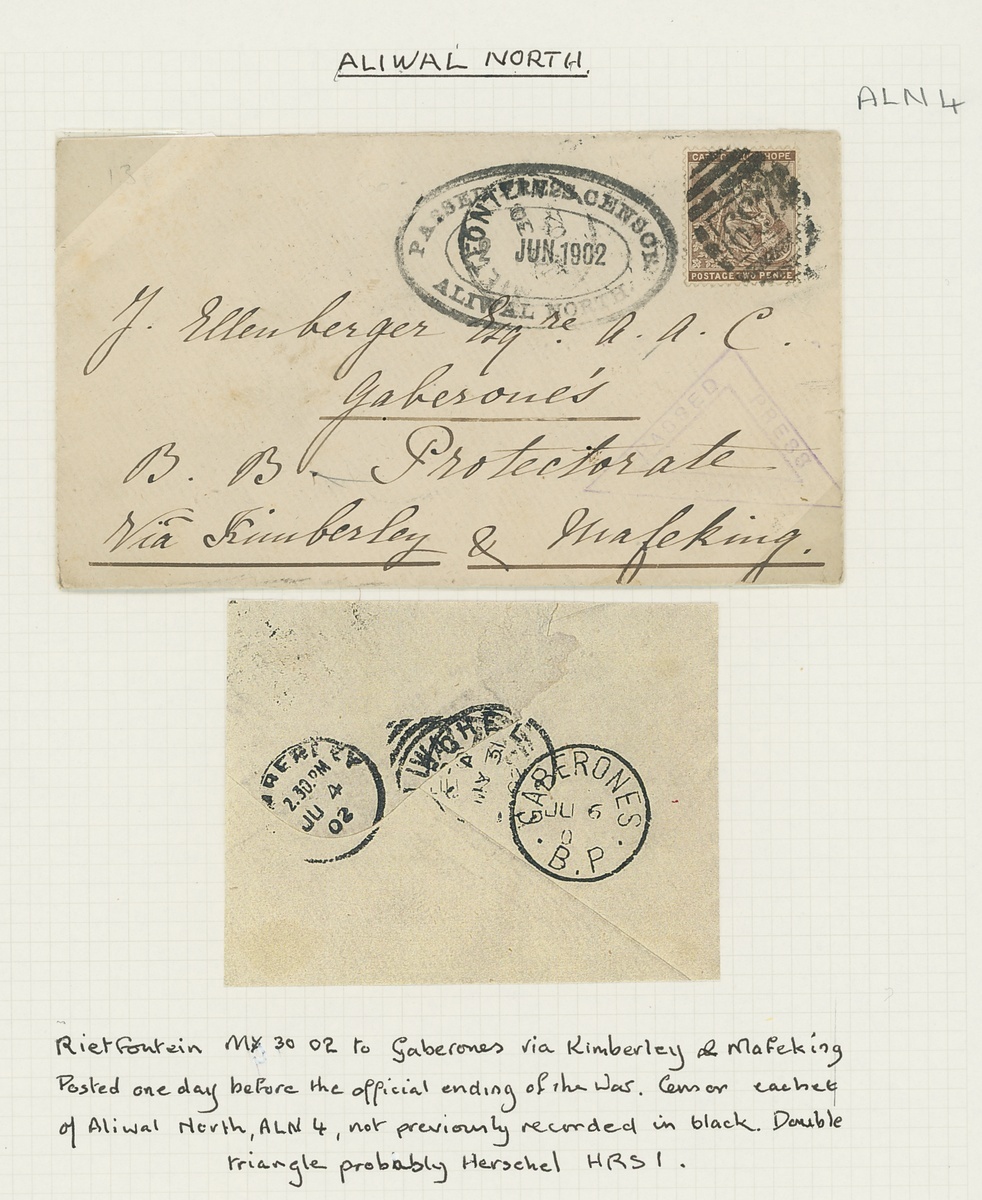 ALIWAL NORTH.
ALN 4
13
PASSED PRESS CENSOR
ALIWAL NORTH.
JUN.1902
POSTAGE TWO PENCE
J. Ellenberger Esqre. A. A. C.
Gaberone's
B. B. Protectorate
Via Kimberley & Mafeking.
PRESS
2.30.PM
JU 4
02
MY 31
GABERONES
JU 6
0
B.P.
Rietfontein MY 30 02 to Gaberones via Kimberley & Mafeking
Posted one day before the official ending of the War. Censor cachet
of Aliwal North, ALN 4, not previously recorded in black. Double
triangle probably Herschel HRS 1.